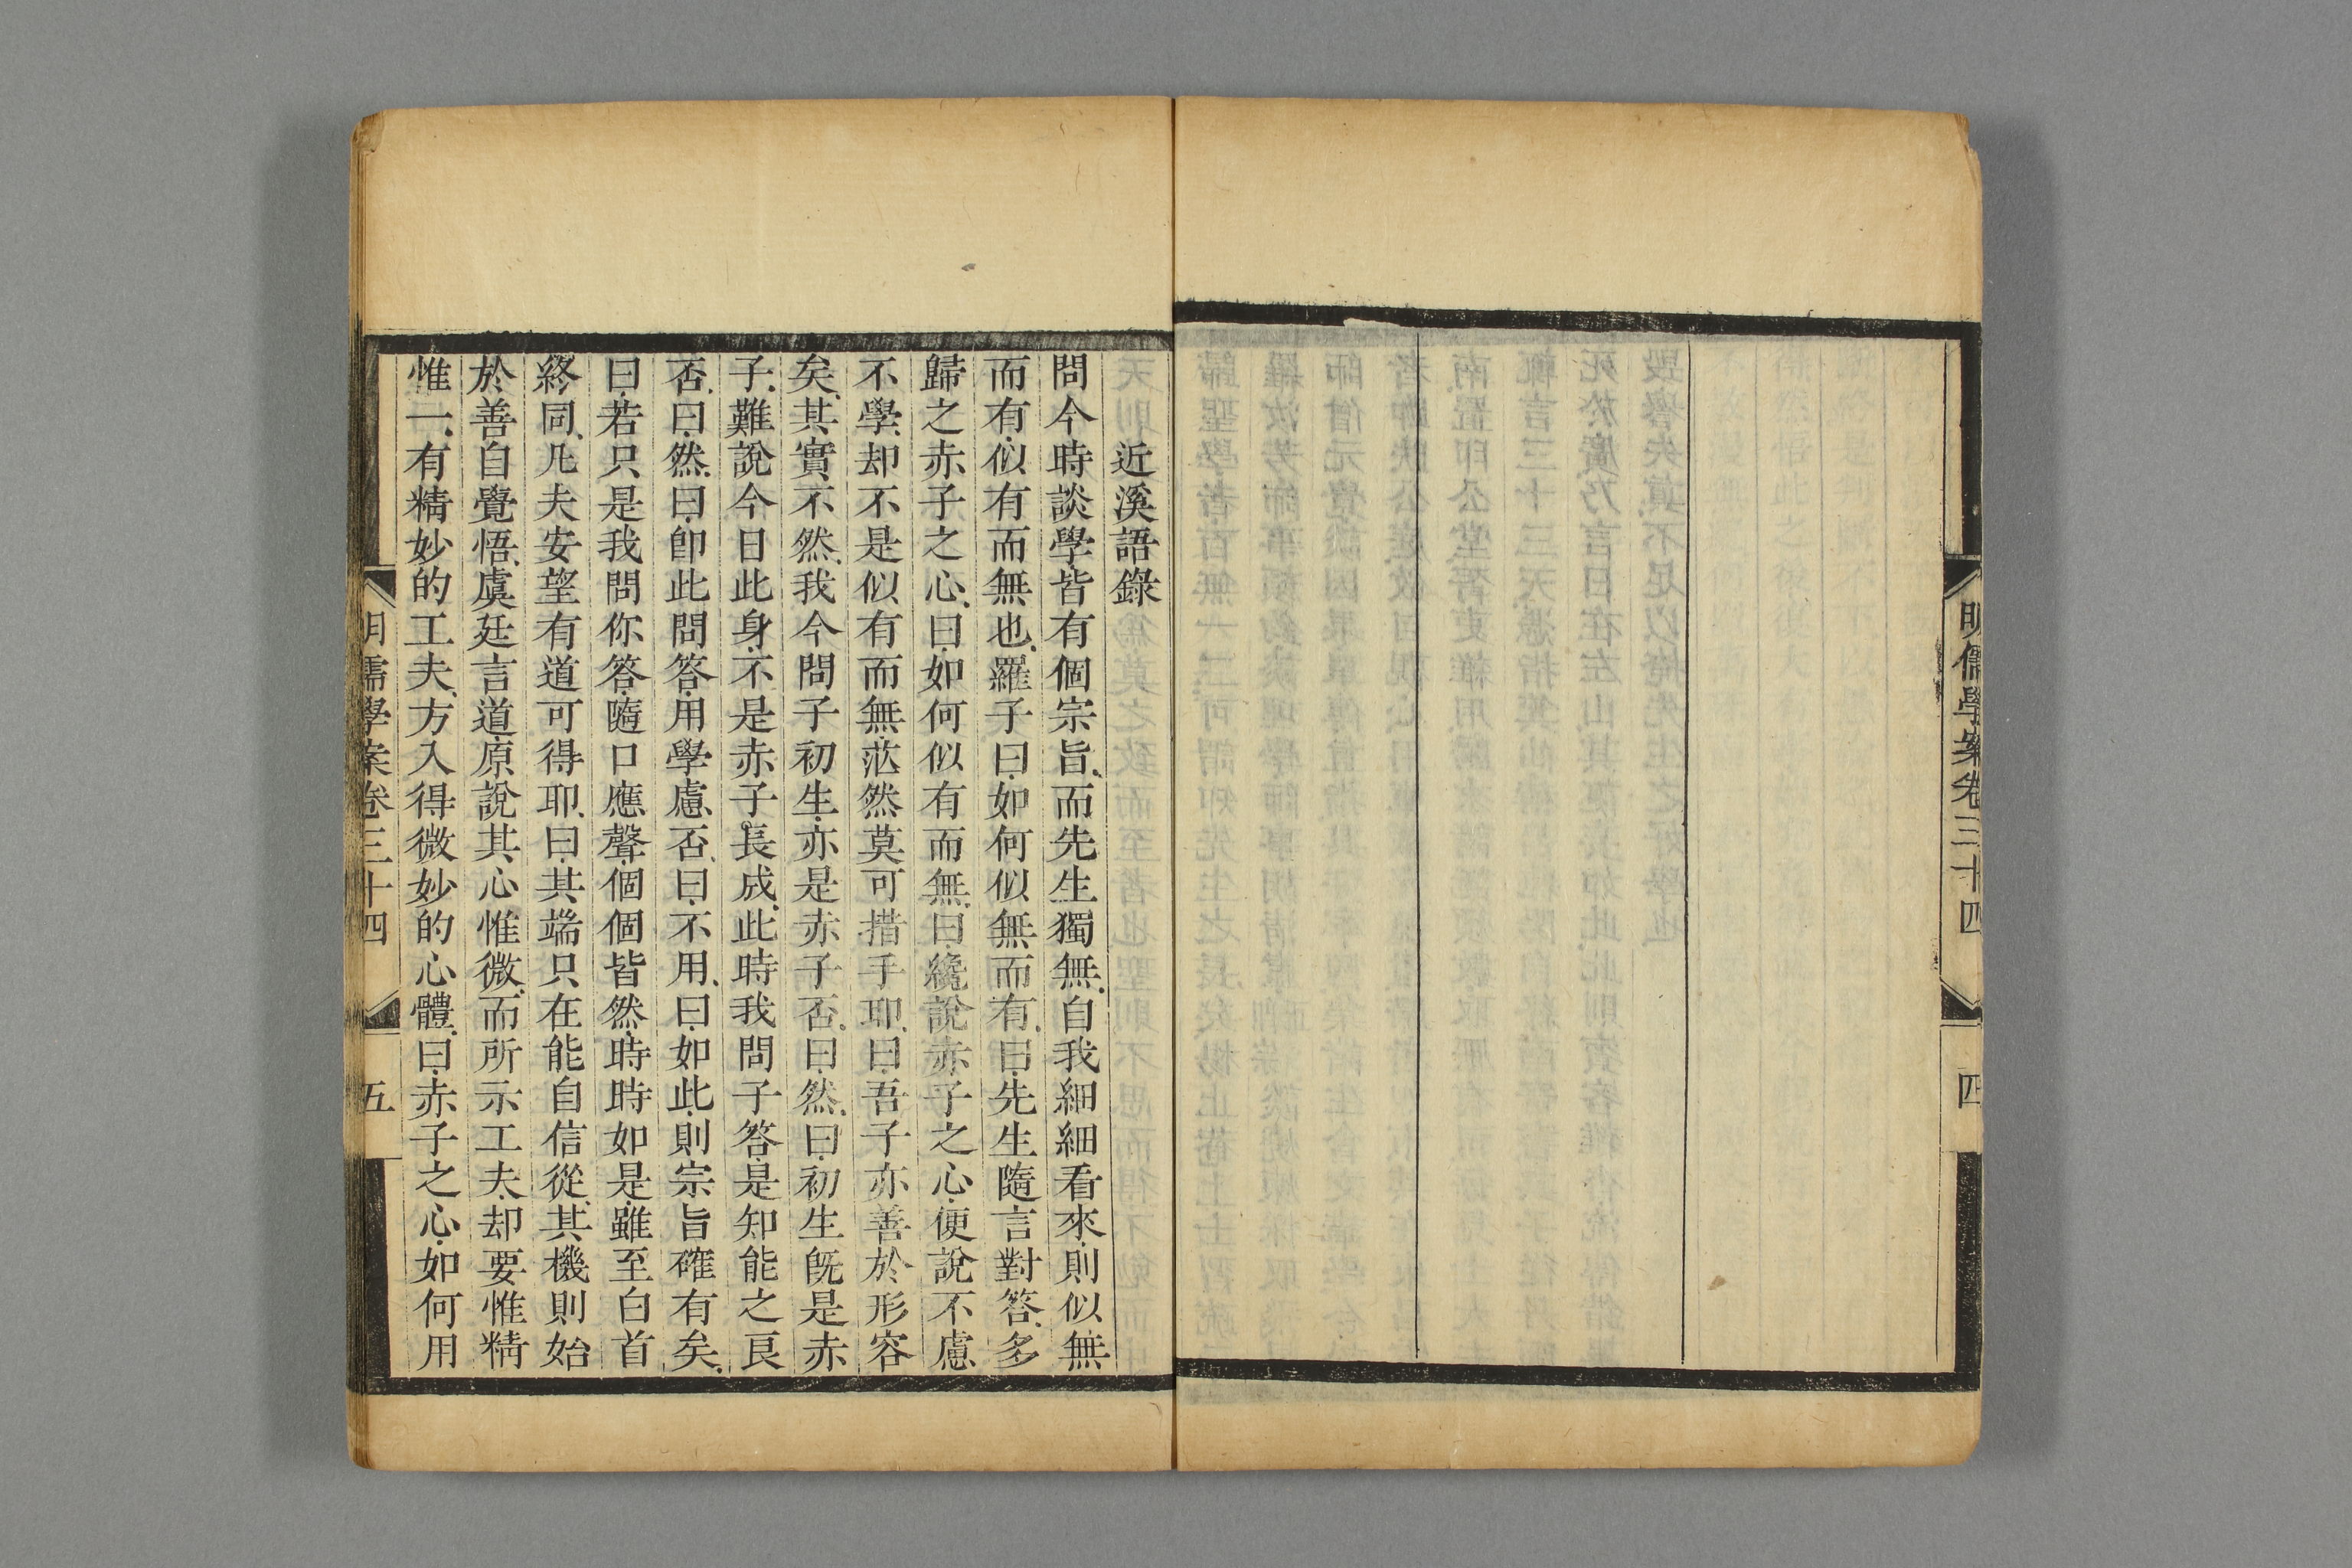 明儒學案卷三十四
四
近溪語錄
問今時談學皆有個宗旨、而先生獨無、自我細細看來、則似無
而有、似有而無也、羅子曰、如何似無而有、曰、先生隨言對答、多
歸之赤子之心、曰、如何似有而無、曰、纔說赤子之心、便說不慮
不學、却不是似有而無、茫然莫可措手耶、曰、吾子亦善於形容
矣、其實不然、我今問子初生、亦是赤子否、曰、然、曰、初生旣是赤
子、難說今日此身、不是赤子長成、此時我問子答、是知能之良
否、曰、然、曰、卽此問答、用學慮否、曰、不用、曰、如此、則宗旨確有矣、
曰、若只是我問你答、隨口應聲、個個皆然、時時如是、雖至白首
終同凡夫、安望有道可得耶、曰、其端只在能自信從、其機則始
於善自覺悟、虞廷言道、原說其心惟微、而所示工夫、却要惟精
惟一、有精妙的工夫、方入得微妙的心體、曰、赤子之心、如何用
明儒學案卷三十四
五